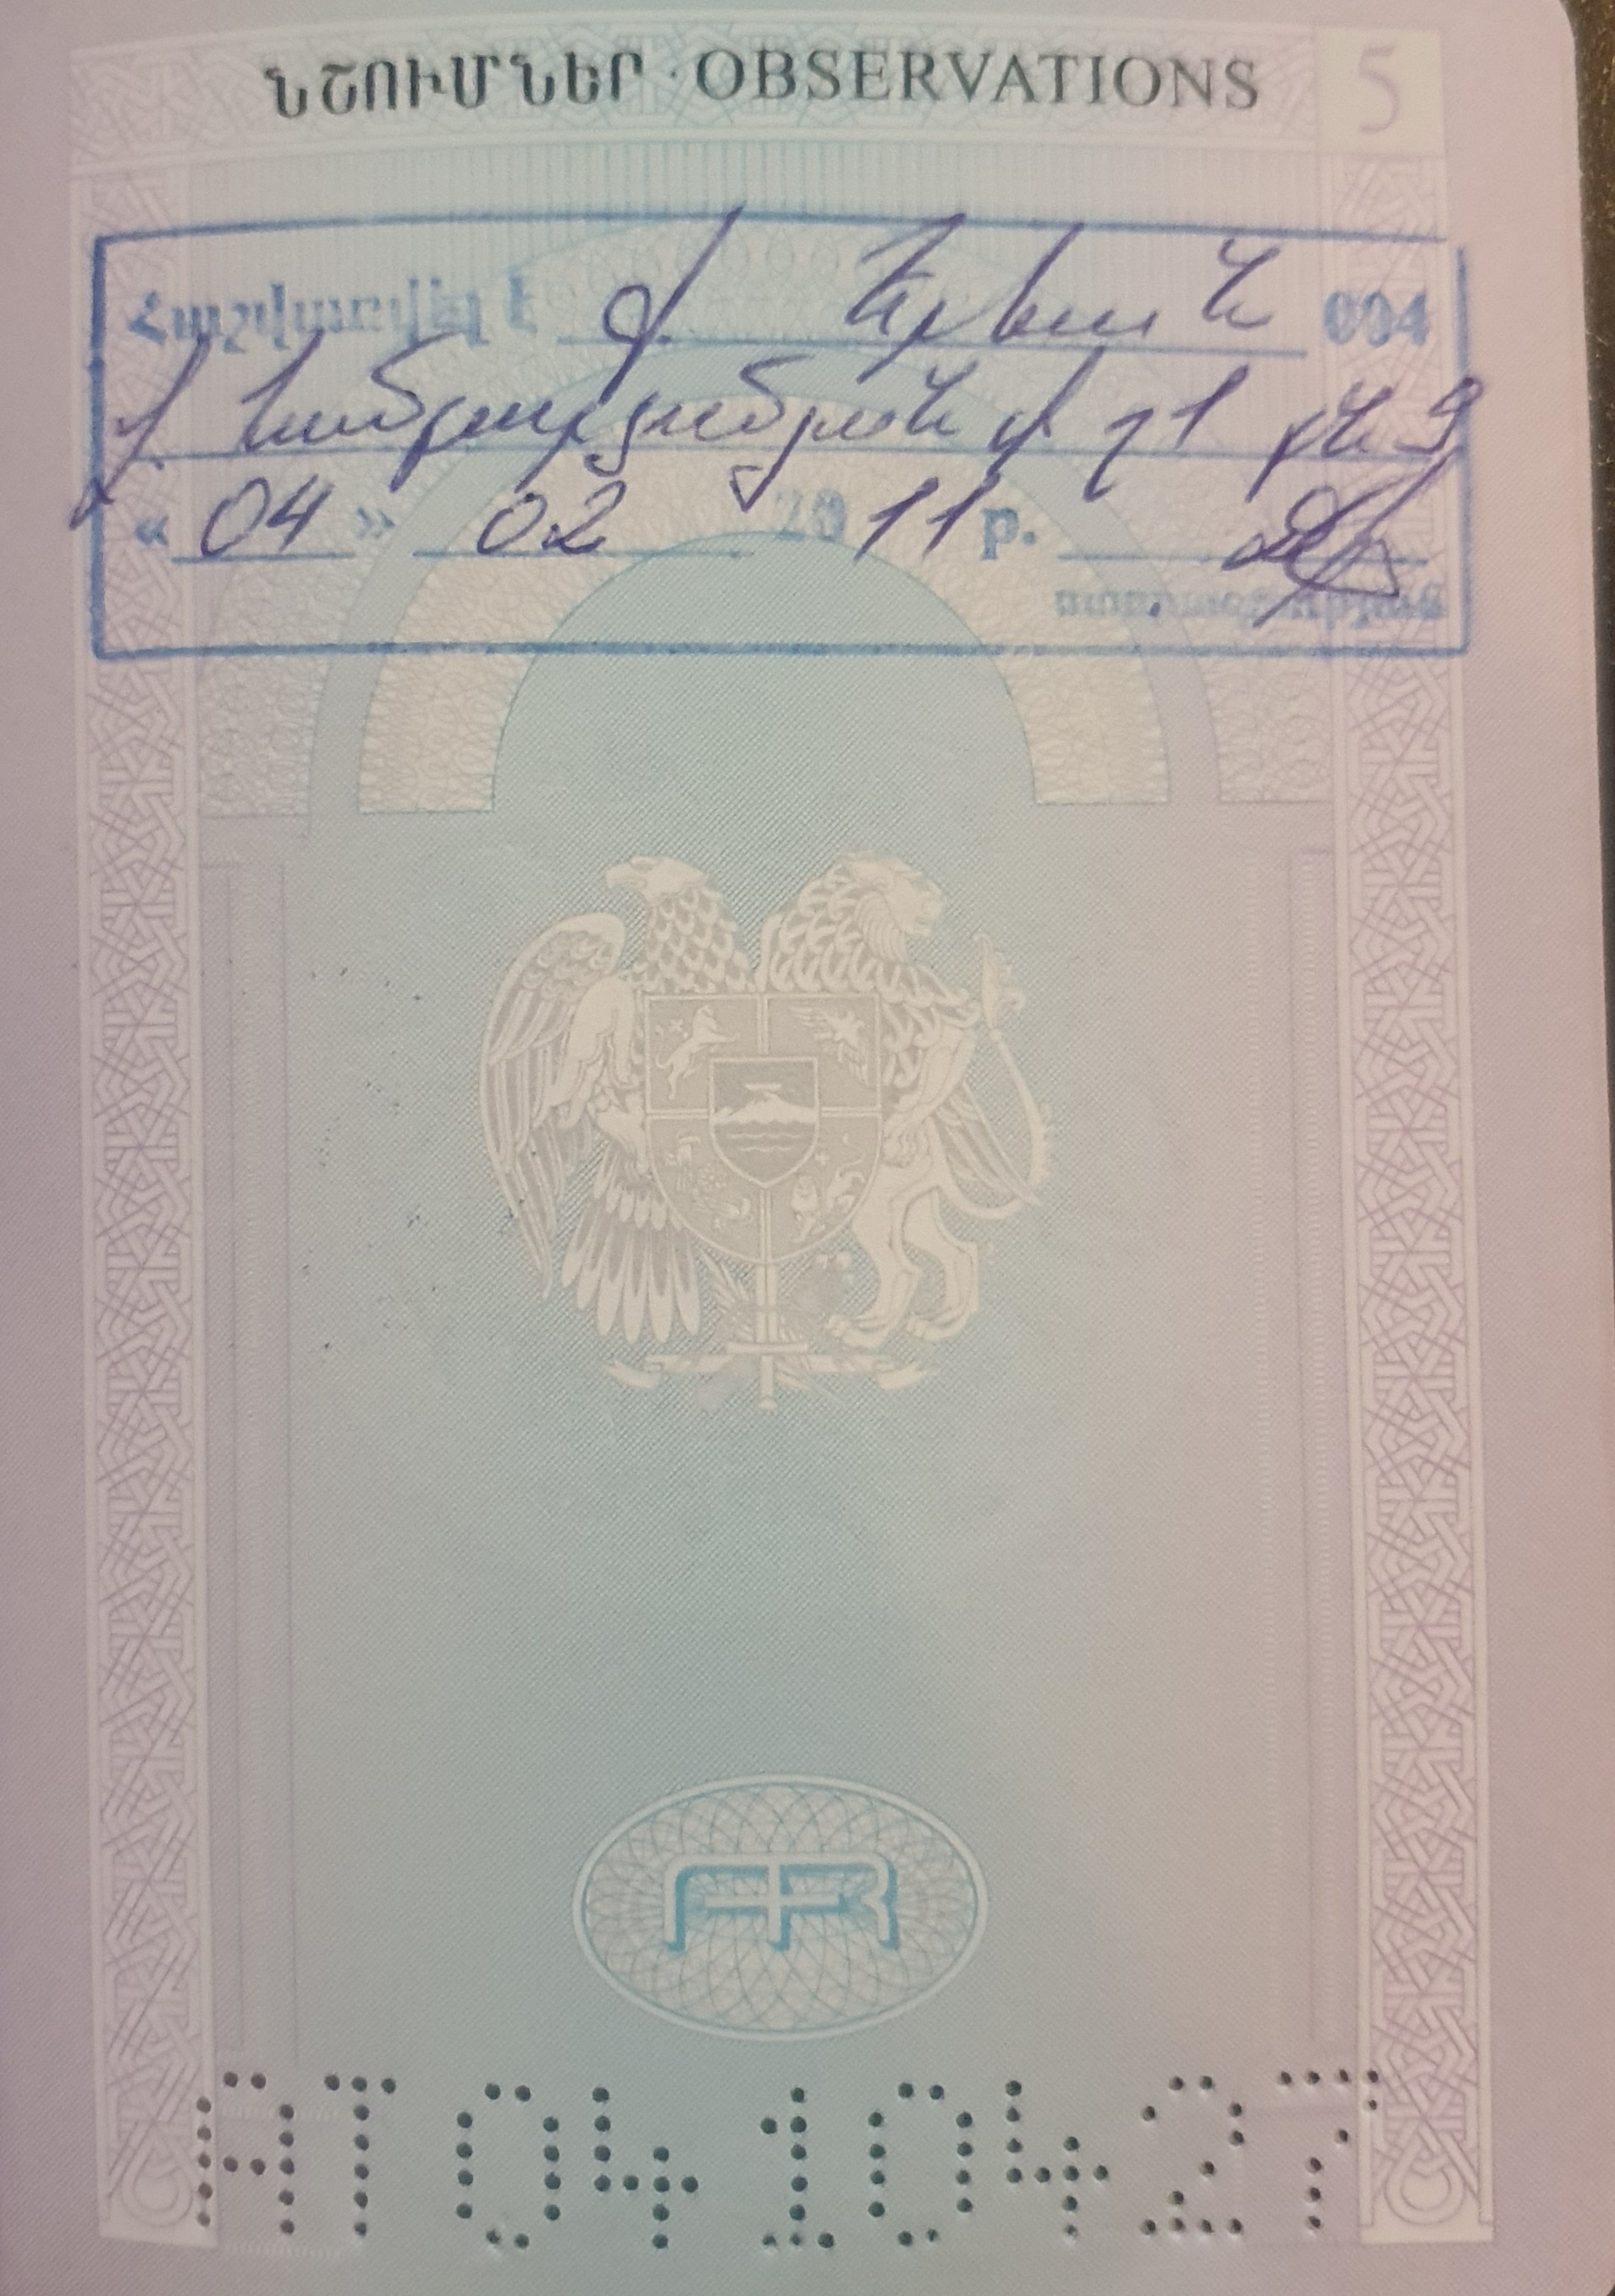 ՆՇՈՒՄՆԵՐ · OBSERVATIONS 5
Հաշվառվել է ք. Երևան 004
փ. շ 1 բն 9
« 04 » 02 2011 թ.
ստորագրություն
AT0410427